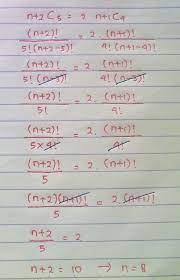 n+2C5 = 2 n+1C4
(n+2)! / 5!(n+2-5)! = 2. (n+1)! / 4!(n+1-4)!
(n+2)! / 5!(n-3)! = 2. (n+1)! / 4!(n-3)!
(n+2)! / 5! = 2. (n+1)! / 4!
(n+2)! / 5×4! = 2. (n+1)! / 4!
(n+2)! / 5 = 2. (n+1)!
(n+2)(n+1)! / 5 = 2. (n+1)!
n+2 / 5 = 2
n+2 = 10 → n = 8